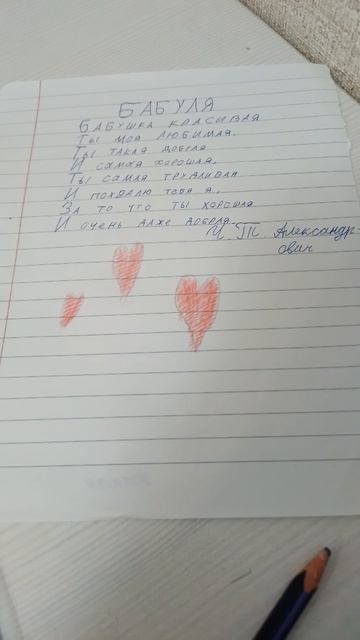 БАБУЛЯ
БАБУШКА КРАСИВАЯ
ТЫ МОЯ ЛЮБИМАЯ.
ТЫ ТАКАЯ ДОБРАЯ
И САМАЯ ХОРОШАЯ.
ТЫ САМАЯ ТРУДЛИВАЯ
И ПОХВАЛЮ ТЕБЯ Я,
ЗА ТО ЧТО ТЫ ХОРОШАЯ
И ОЧЕНЬ ДАЖЕ ДОБРАЯ.
Александр-
ович